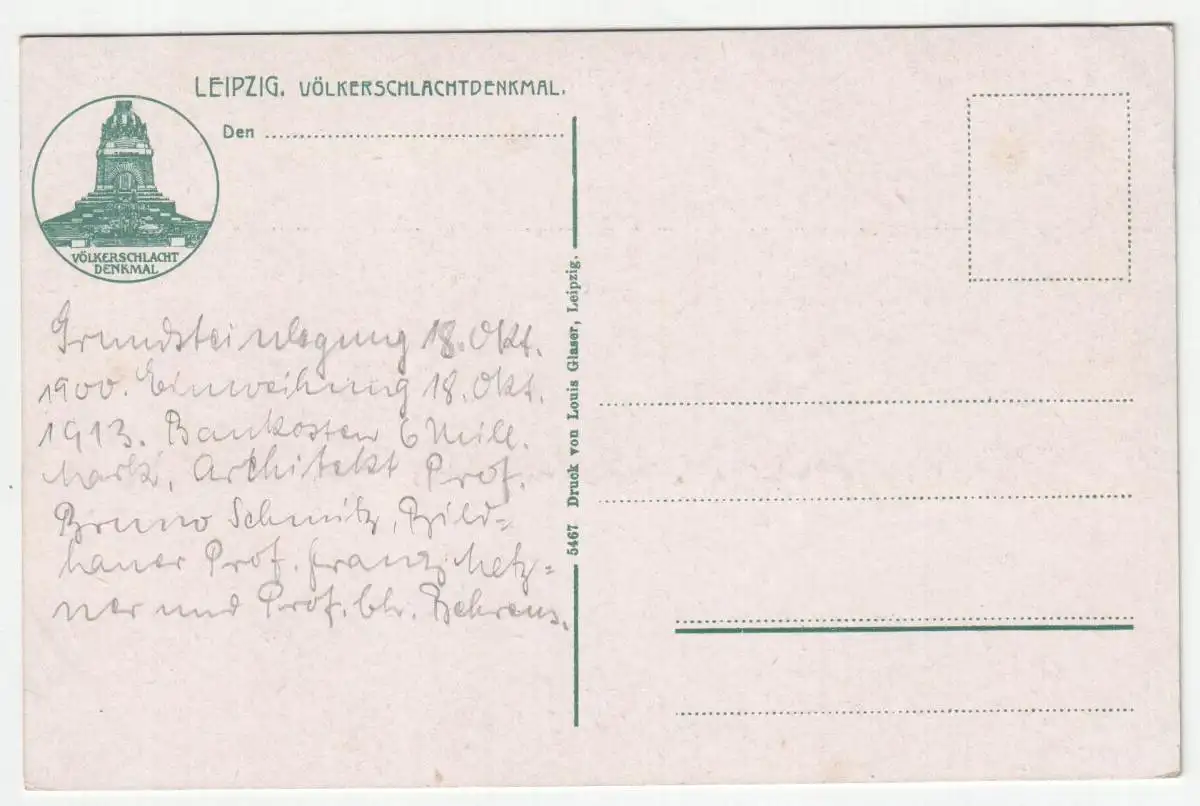 LEIPZIG. VÖLKERSCHLACHTDENKMAL.
Den
VÖLKERSCHLACHT
DENKMAL
Grundsteinlegung 18. Okt.
1900. Einweihung 18. Okt.
1913. Baukosten 6 Mill.
Mark, Architekt Prof.
Bruno Schmitz, Bild=
hauer Prof. Franz Metz=
ner und Prof. Chr. Behrens.
5467 Druck von Louis Glaser, Leipzig.